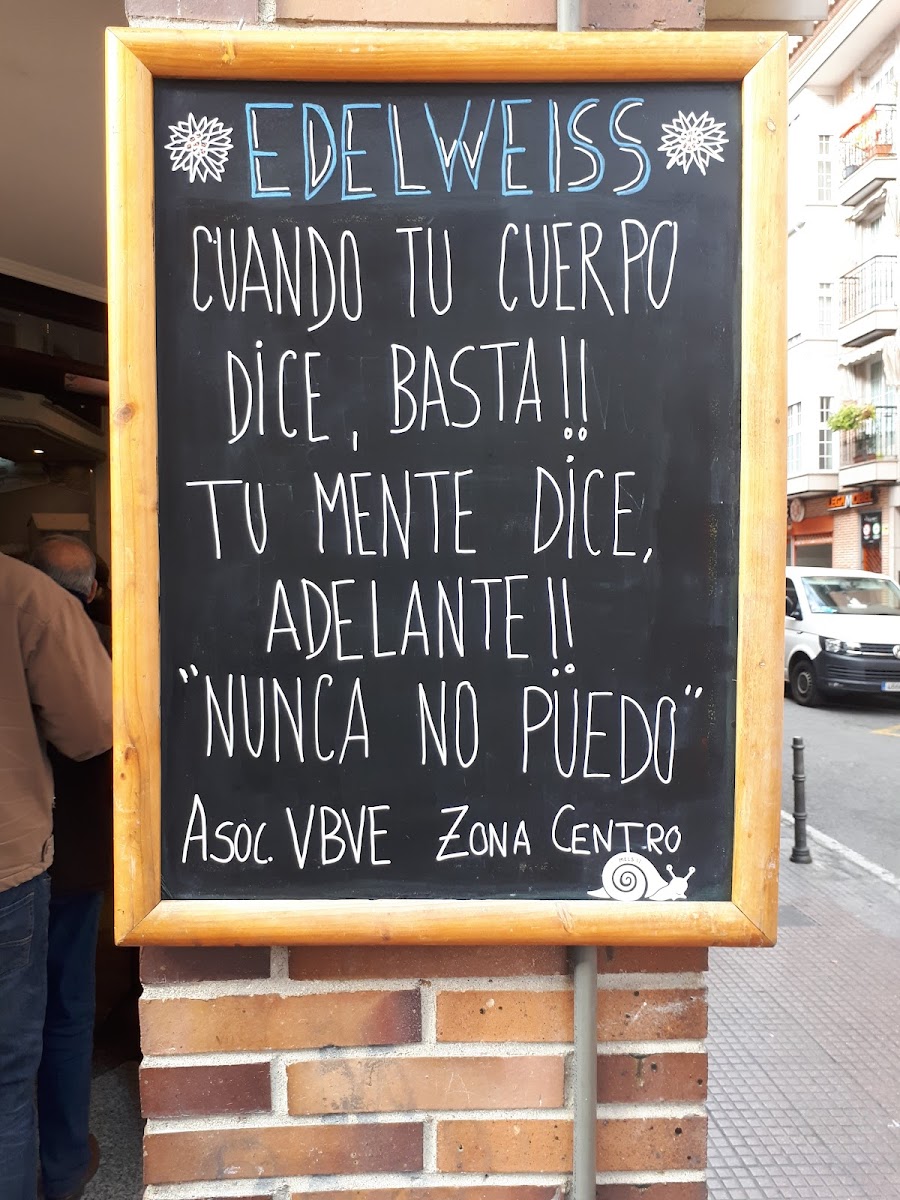 EDELWEISS
CUANDO TU CUERPO
DICE, BASTA!!
TU MENTE DICE,
ADELANTE!!
"NUNCA NO PUEDO"
ASOC. VBVE ZONA CENTRO